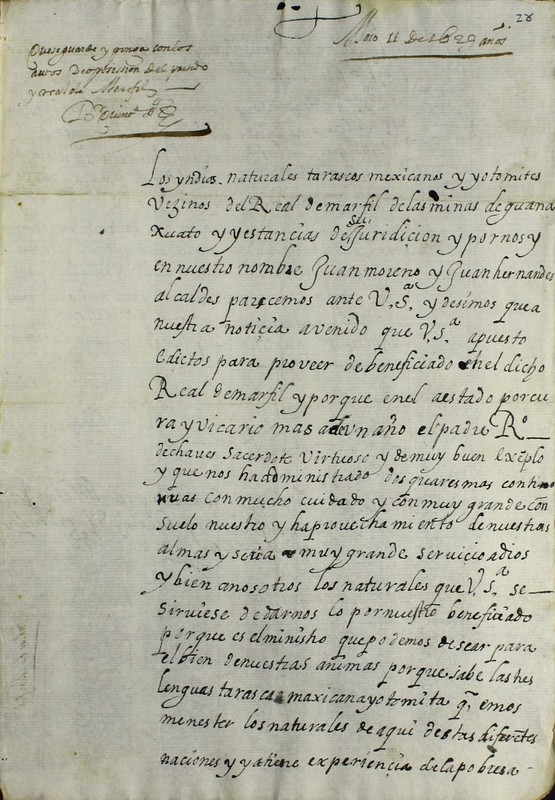 28
Maio 11 de 1629 años
que se guarde y ponga con los
autos de oposission del partido
y Real de Marfil
Los yndios naturales tarascos mexicanos y yotomites
Vezinos del Real de marfil de las minas de guana
xuato y yestancias de su Juridicion y por nos y
en nuestro nombre Juan moreno y Juan hernandes
alcaldes paresemos ante V.Sª y desimos que a
nuestra noticia a venido que V.Sª a puesto
Edictos para proveer de beneficiado en el dicho
Real de marfil y porque en el a estado por cu
ra y vicario mas de un año el padre Rº
de chaves Sacerdote virtuoso y de muy buen exeplo
y que nos ha administrado dos quaresmas conti
nuas con mucho cuidado y con muy grande con
suelo nuestro y ha provechamiento de nuestras
almas y seria muy grande servicio a dios
y bien a nosotros los naturales que V.Sª se
sirviese de darnos lo por nuestro beneficiado
porque es el ministro que podemos desear para
el bien de nuestras animas porque sabe las tres
lenguas tarasca maxicana yotomita q emos
menester los naturales de aqui de estas diferetes
naciones y ya tiene experiencia de la pobresa